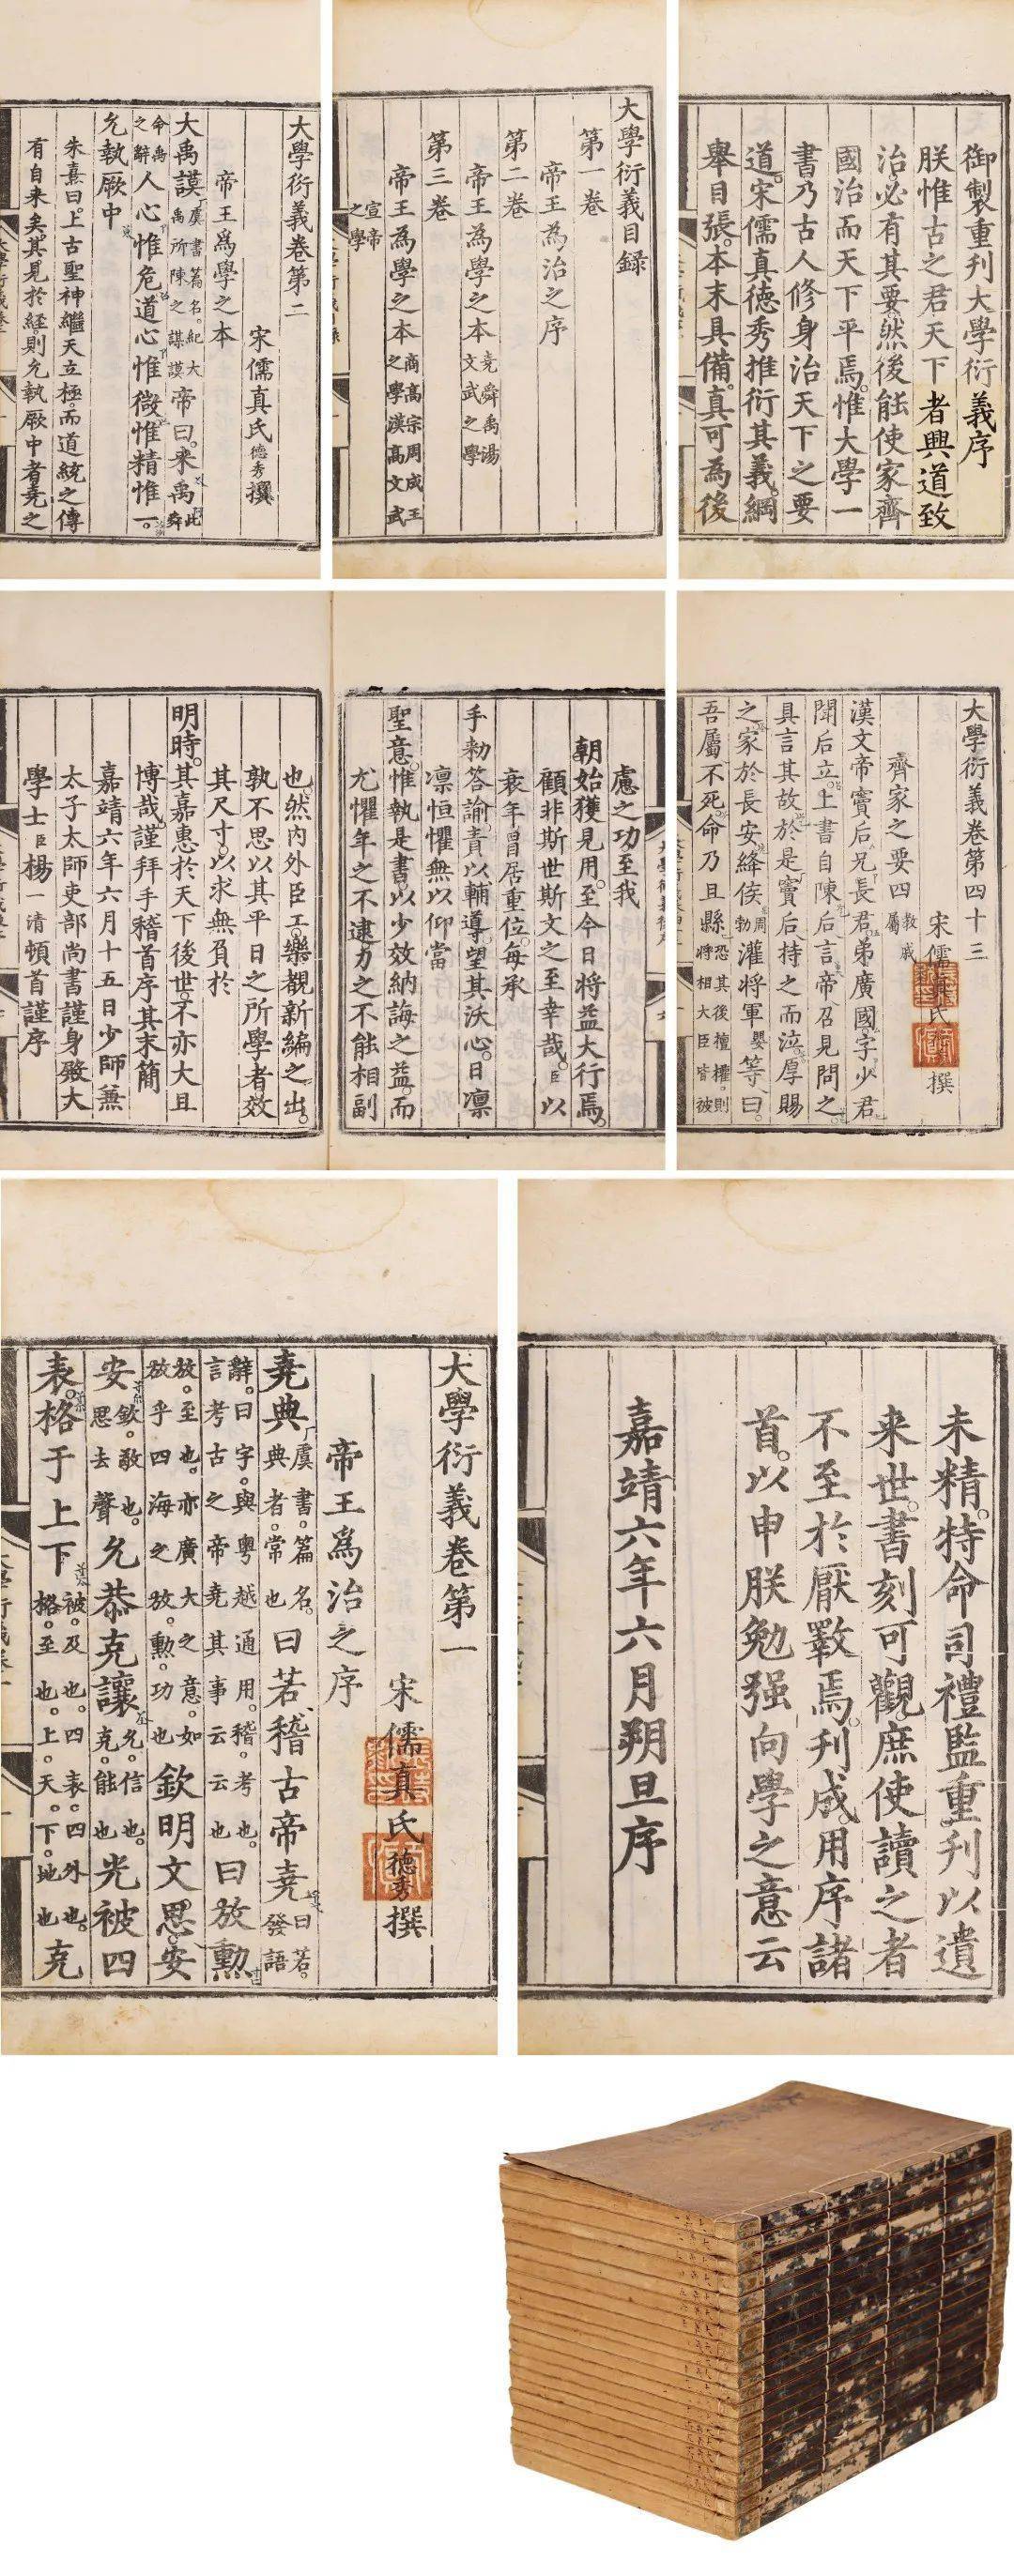 御製重刋大學衍義序
朕惟古之君天下者興道致
治必有其要然後能使家齊
國治而天下平焉惟大學一
書乃古人修身治天下之要
道宋儒真德秀推衍其義綱
舉目張本末具備真可為後
大學衍義目録
第一卷
帝王為治之序
第二卷
帝王為學之本堯舜禹湯文武之學
第三卷
帝王為學之本商高宗周成王之學漢高文武
宣帝之學
大學衍義卷第二
宋儒真氏德秀撰
帝王爲學之本
大禹謨虞書篇名紀大禹所陳之謀謨帝曰来禹此舜
命禹之辭人心惟危道心惟微惟精惟一
允執厥中
朱熹曰上古聖神繼天立極而道統之傳
有自来矣其見於經則允執厥中者堯之
大學衍義卷第四十三
宋儒真氏撰
齊家之要四教戚屬
漢文帝竇后兄長君弟廣國字少君
聞后立上書自陳后言帝召見問之
具言其故於是竇后持之而泣厚賜
之家於長安絳侯周勃灌將軍嬰等曰
吾屬不死命乃且縣恐其後擅權則將相大臣皆被
慮之功至我
朝始獲見用至今日将益大行焉
顧非斯世斯文之至幸哉臣以
衰年曾居重位每承
手勑答諭責以輔導望其沃心日凛
凛恒懼無以仰當
聖意惟執是書以少效納誨之益而
尤懼年之不逮力之不能相副
也然内外臣工樂覩新編之出
孰不思以其平日之所學者效
其尺寸以求無負於
明時其嘉惠於天下後世不亦大且
博哉謹拜手稽首序其末簡
嘉靖六年六月十五日少師兼
太子太師吏部尚書謹身殿大
學士臣楊一清頓首謹序
未精特命司禮監重刋以遺
来世書刻可觀庶使讀之者
不至於厭斁焉刋成用序諸
首以申朕勉强向學之意云
嘉靖六年六月朔旦序
大學衍義卷第一
宋儒真氏德秀撰
帝王爲治之序
堯典虞書篇名典者常也曰若稽古帝堯曰若發語
辭曰字與粤越通用稽考也言考古之帝堯其事云云也曰放勳
放至也亦廣大之意如放乎四海之放勳功也欽明文思安
安欽敬也思去聲允恭克讓允信也克能也光被四
表格于上下被及也四表四外也格至也上天下地也克